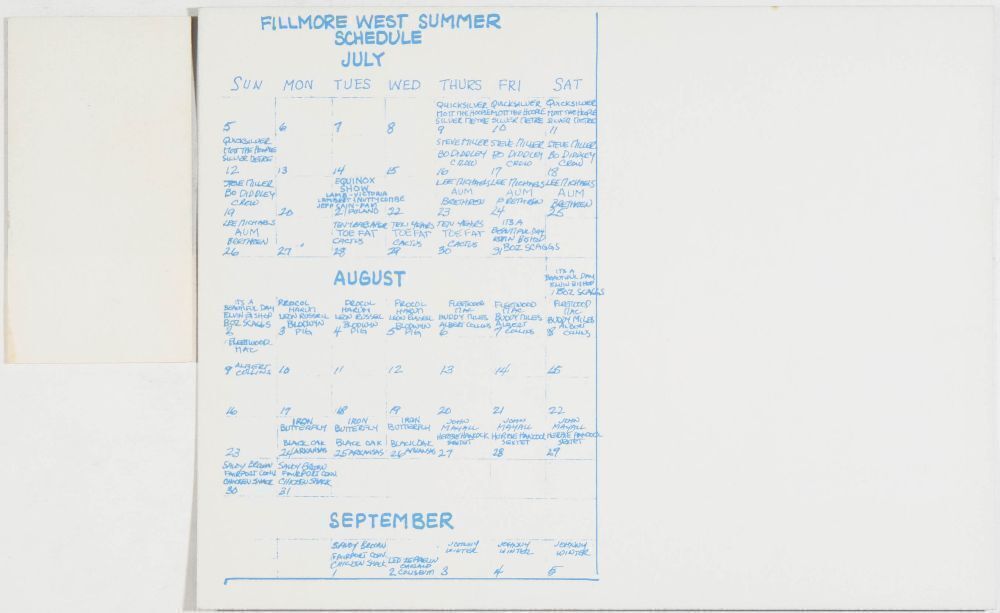 FILLMORE WEST SUMMER
SCHEDULE
JULY
SUN MON TUES WED THURS FRI SAT
QUICKSILVER QUICKSILVER QUICKSILVER
MOTT THE HOOPLE MOTT THE HOOPLE MOTT THE HOOPLE
SILVER METRE SILVER METRE SILVER METRE
5 6 7 8 9 10 11
QUICKSILVER STEVE MILLER STEVE MILLER STEVE MILLER
MOTT THE HOOPLE BO DIDDLEY BO DIDDLEY BO DIDDLEY
SILVER METRE CROW CROW CROW
12 13 14 15 16 17 18
STEVE MILLER EQUINOX LEE MICHAELS LEE MICHAELS LEE MICHAELS
BO DIDDLEY SHOW AUM AUM AUM
CROW LAMB - VICTORIA BRETHREN BRETHREN BRETHREN
LAMBERT & NUTTYCOMBE
JEFF CAIN - PAM
19 20 21 POLAND 22 23 24 25
LEE MICHAELS TEN YEARS AFTER TEN YEARS TEN YEARS IT'S A
AUM TOE FAT TOE FAT TOE FAT BEAUTIFUL DAY
BRETHREN CACTUS CACTUS CACTUS ELVIN BISHOP
26 27 28 29 30 31 BOZ SCAGGS
AUGUST
IT'S A
BEAUTIFUL DAY
ELVIN BISHOP
1 BOZ SCAGGS
IT'S A PROCOL PROCOL PROCOL FLEETWOOD FLEETWOOD FLEETWOOD
BEAUTIFUL DAY HARUM HARUM HARUM MAC MAC MAC
ELVIN BISHOP LEON RUSSELL LEON RUSSEL LEON RUSSELL BUDDY MILES BUDDY MILES BUDDY MILES
BOZ SCAGGS BLODWYN BLODWYN BLODWYN ALBERT COLLINS ALBERT ALBERT
2 3 PIG 4 PIG 5 PIG 6 7 COLLINS 8 COLLINS
FLEETWOOD
MAC
9 ALBERT 10 11 12 13 14 15
COLLINS
16 17 18 19 20 21 22
IRON IRON IRON JOHN JOHN JOHN
BUTTERFLY BUTTERFLY BUTTERFLY MAYALL MAYALL MAYALL
BLACK OAK BLACK OAK BLACK OAK HERBIE HANCOCK HERBIE HANCOCK HERBIE HANCOCK
SEXTET SEXTET SEXTET
23 24 ARKANSAS 25 ARKANSAS 26 ARKANSAS 27 28 29
SAVOY BROWN SAVOY BROWN
FAIRPORT CONV. FAIRPORT CONV.
CHICKEN SHACK CHICKEN SHACK
30 31
SEPTEMBER
SAVOY BROWN JOHNNY JOHNNY JOHNNY
FAIRPORT CONV. LED ZEPPELIN WINTER WINTER WINTER
CHICKEN SHACK OAKLAND
1 2 COLISEUM 3 4 5